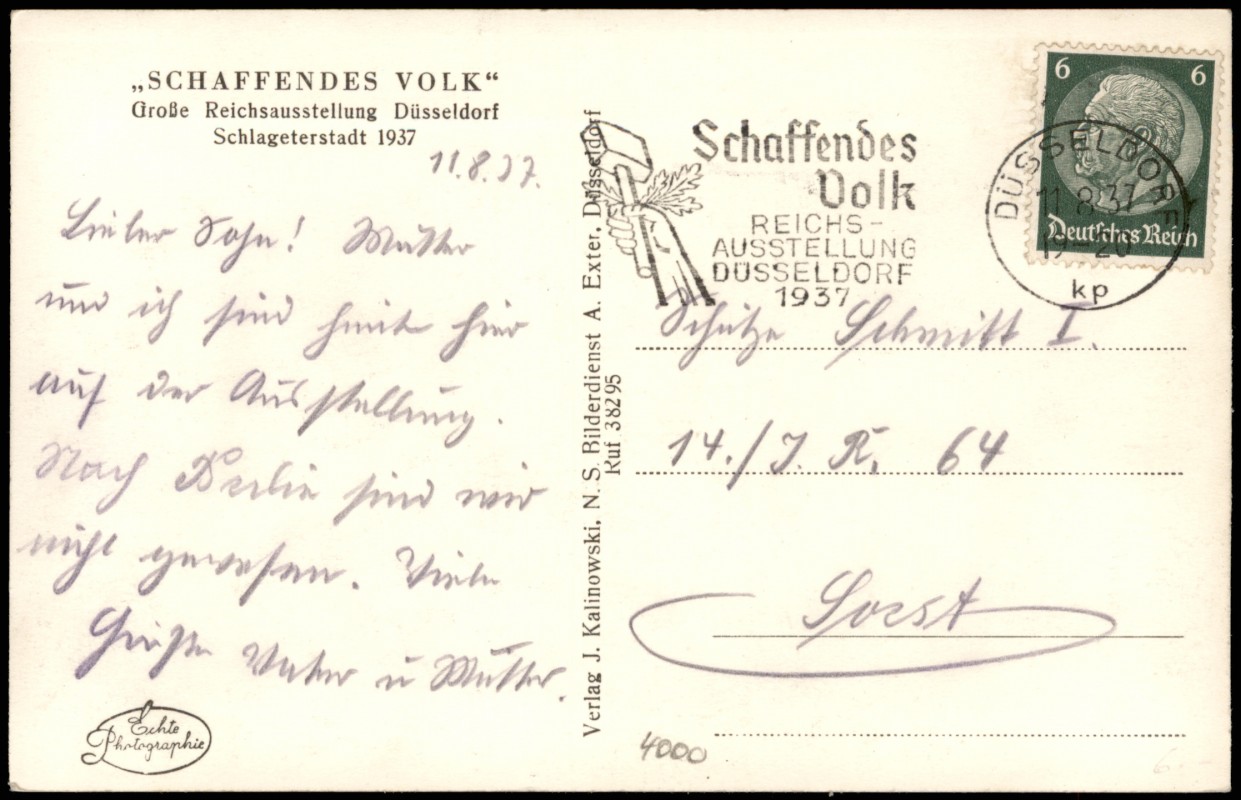 „SCHAFFENDES VOLK“
Große Reichsausstellung Düsseldorf
Schlageterstadt 1937
11.8.37.
Lieber Sohn! Mutter
und ich sind heute hier
auf der Ausstellung.
Nach Berlin sind wir
nicht gewesen. Viele
Grüße Vater u Mutter.
Echte
Photographie
Verlag J. Kalinowski, N. S. Bilderdienst A. Exter, Düsseldorf
Ruf 38295
Schaffendes
Volk
REICHS-
AUSSTELLUNG
DÜSSELDORF
1937
6 6
Deutsches Reich
DÜSSELDORF
11.8.37
kp
Schütze Schmitt I.
14./J. R. 64
Soest
4000